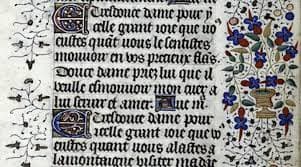 Tresdouce dame pour y
celle grant ioie que vo
eustes quant vous le sentistes
mouuoir en vos precieux flās.
Douce dame priez lui que il
vueille esmouuoir mon cuer a
lui seruir et amer. Aue m.
Tresdouce dame pour y
celle grant ioie que vo
eustes quant vous alastes
a la montaigne visiter ma dā